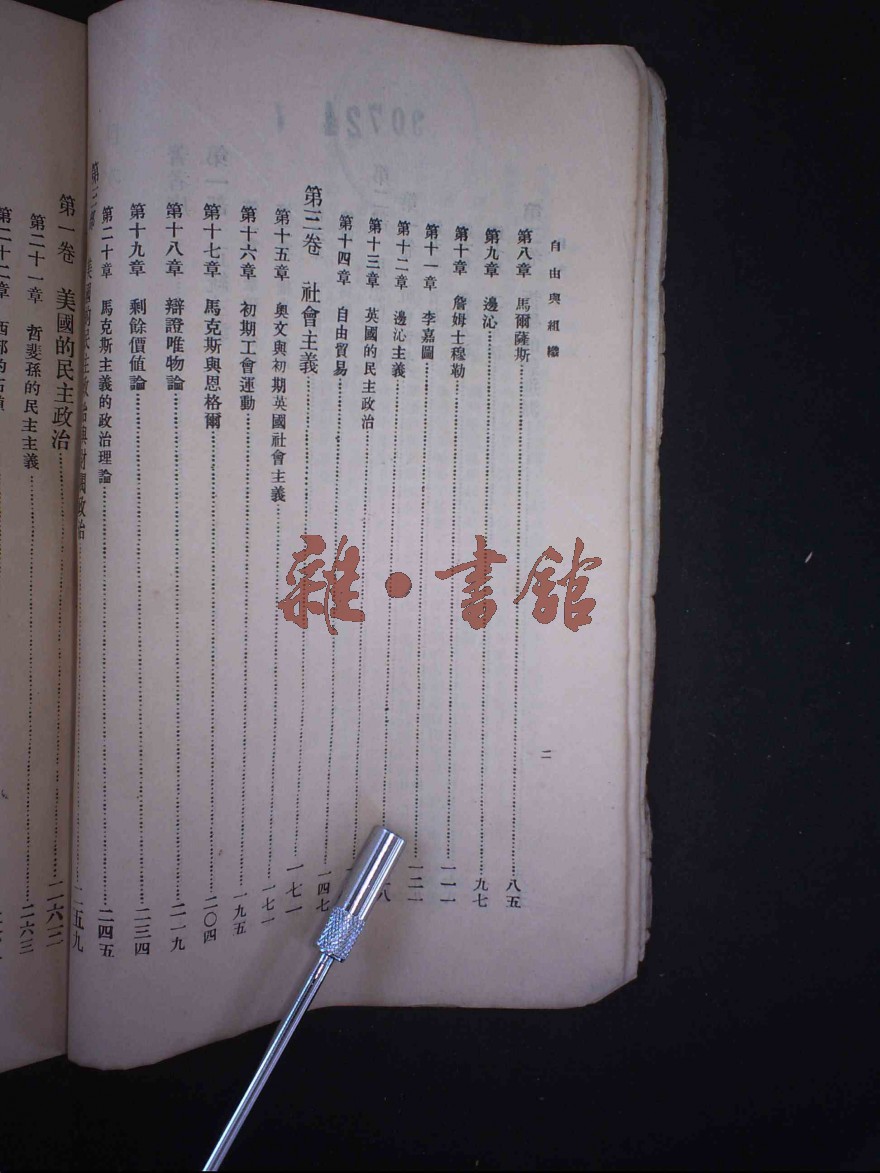 自由與組織
二
第八章 馬爾薩斯 八五
第九章 邊沁 九七
第十章 詹姆士穆勒 一一一
第十一章 李嘉圖 一二一
第十二章 邊沁主義
第十三章 英國的民主政治
第十四章 自由貿易 一四七
第三卷 社會主義 一七一
第十五章 奧文與初期英國社會主義 一七一
第十六章 初期工會運動 一九五
第十七章 馬克斯與恩格爾 二〇四
第十八章 辯證唯物論 二一九
第十九章 剩餘價値論 二三四
第二十章 馬克斯主義的政治理論 二四五
第三部 美國的民主政治與財閥政治 二五九
第一卷 美國的民主政治 二六三
第二十一章 哲斐孫的民主主義 二六三
第二十二章 西部的
雜·書館